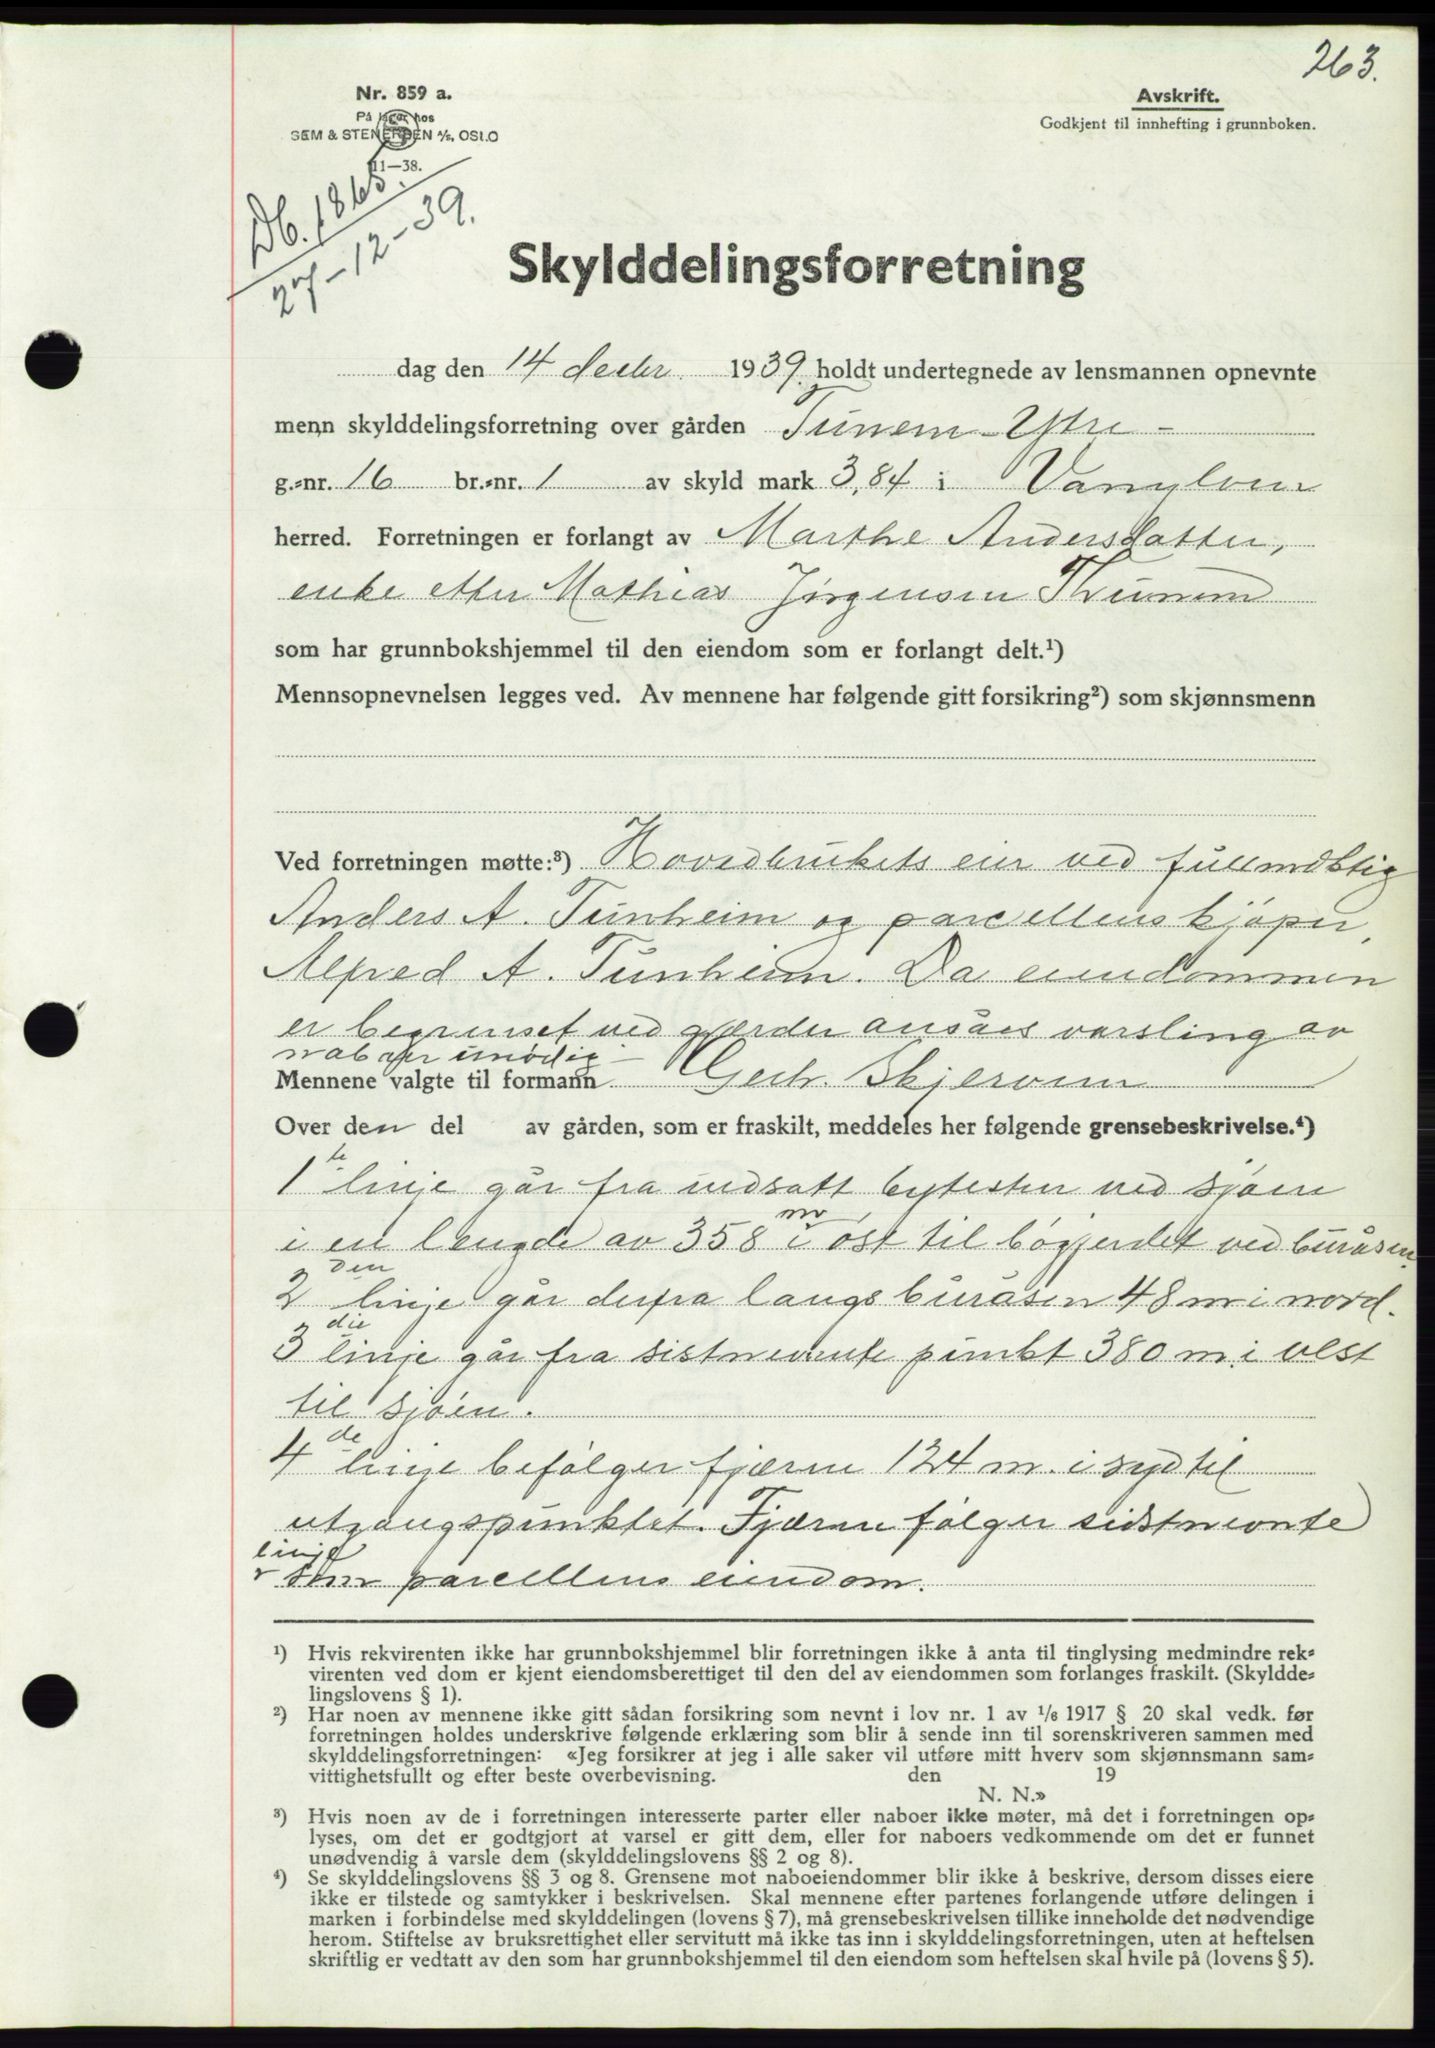 263.
Nr. 859 a.
På lager hos
SEM & STENERSEN A/S, OSLO
11—38.
Avskrift.
Godkjent til innhefting i grunnboken.
Db. 1865.
27-12-39.
Skylddelingsforretning
dag den 14 decbr. 1939. holdt undertegnede av lensmannen opnevnte
menn skylddelingsforretning over gården Tunem - Ytre -
g.-nr. 16 br.-nr. 1 av skyld mark 3,84 i Vanylven
herred. Forretningen er forlangt av Marthe Andersdatter,
enke etter Mathias Jørgensen Thunem
som har grunnbokshjemmel til den eiendom som er forlangt delt.¹)
Mennsopnevnelsen legges ved. Av mennene har følgende gitt forsikring²) som skjønnsmenn
Ved forretningen møtte:³) Hovedbrukets eier ved fullmektig
Anders A. Tunheim og parcellens kjøper,
Alfred A. Tunheim. Da eiendommen
er begrenset ved gjærder ansåes varsling av
naboer unødig -
Mennene valgte til formann Gerh. Skjerven
Over den del av gården, som er fraskilt, meddeles her følgende grensebeskrivelse.⁴)
1te linje går fra nedsatt bytesten ved sjøen
i en lengde av 358 m i øst til bøgjerdet ved buråsen.
2den linje går derfra langs buråsen 48 m i nord.
3die linje går fra sistnevnte punkt 380 m. i vest
til sjøen.
4de linje befølger fjæren 124 m. i syd til
utgangspunktet. Fjæren følger sidstnevnte
linje
som parcellens eiendom.
¹) Hvis rekvirenten ikke har grunnbokshjemmel blir forretningen ikke å anta til tinglysing medmindre rek-
virenten ved dom er kjent eiendomsberettiget til den del av eiendommen som forlanges fraskilt. (Skyldde-
lingslovens § 1).
²) Har noen av mennene ikke gitt sådan forsikring som nevnt i lov nr. 1 av 1/6 1917 § 20 skal vedk. før
forretningen holdes underskrive følgende erklæring som blir å sende inn til sorenskriveren sammen med
skylddelingsforretningen: «Jeg forsikrer at jeg i alle saker vil utføre mitt hverv som skjønnsmann sam-
vittighetsfullt og efter beste overbevisning. den 19
N. N.»
³) Hvis noen av de i forretningen interesserte parter eller naboer ikke møter, må det i forretningen op-
lyses, om det er godtgjort at varsel er gitt dem, eller for naboers vedkommende om det er funnet
unødvendig å varsle dem (skylddelingslovens §§ 2 og 8).
⁴) Se skylddelingslovens §§ 3 og 8. Grensene mot naboeiendommer blir ikke å beskrive, dersom disses eiere
ikke er tilstede og samtykker i beskrivelsen. Skal mennene efter partenes forlangende utføre delingen i
marken i forbindelse med skylddelingen (lovens § 7), må grensebeskrivelsen tillike inneholde det nødvendige
herom. Stiftelse av bruksrettighet eller servitutt må ikke tas inn i skylddelingsforretningen, uten at heftelsen
skriftlig er vedtatt av den som har grunnbokshjemmel til den eiendom som heftelsen skal hvile på (lovens § 5).